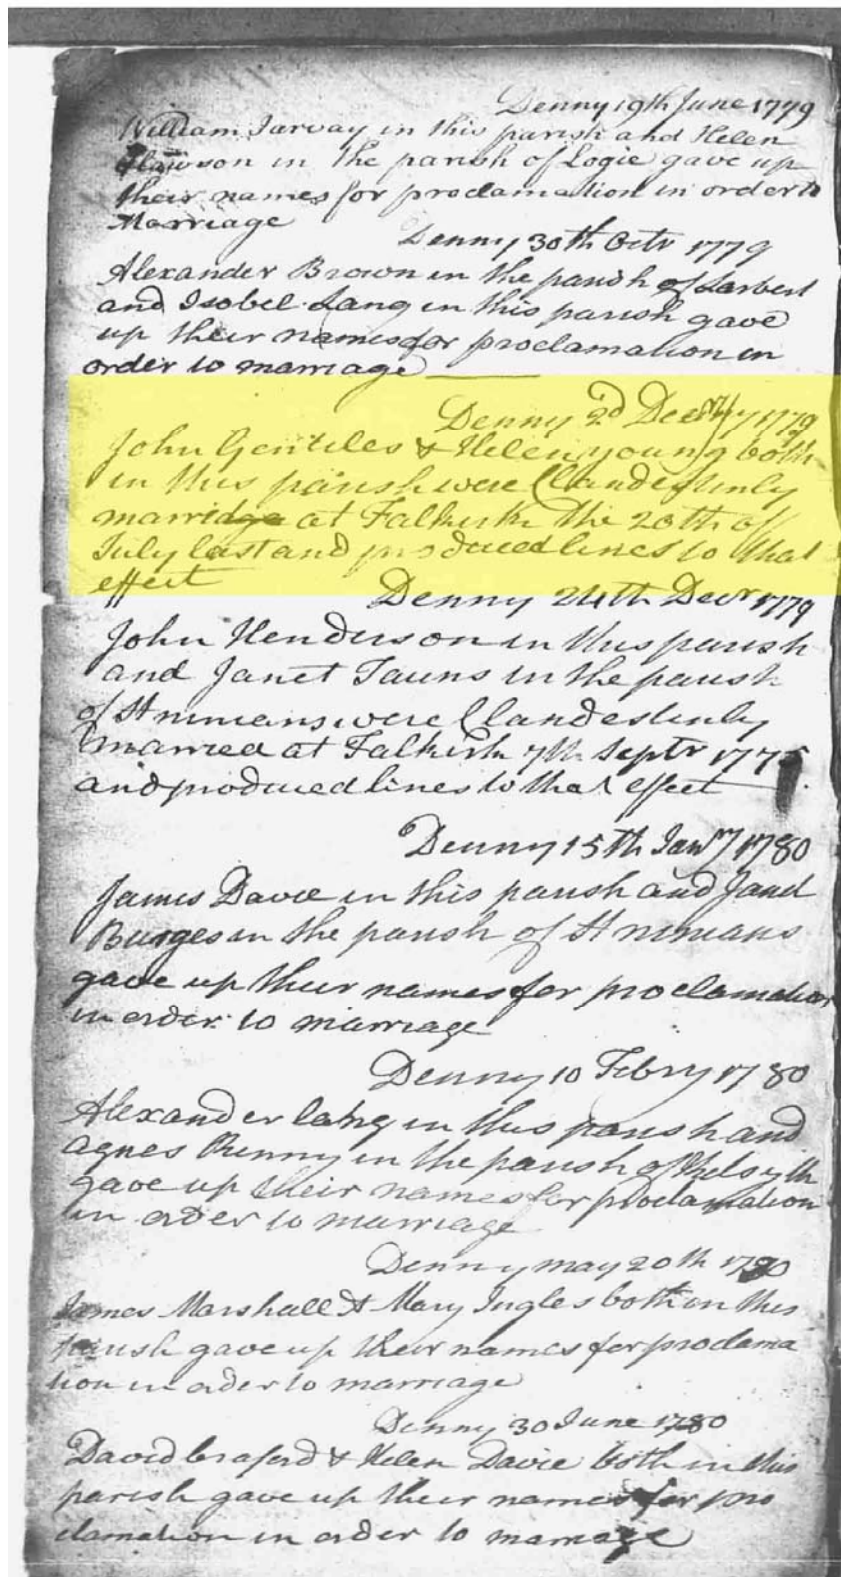 Denny 19th June 1779
William Jarvay in this parish and Helen
in the parish of Logie gave up
their names for proclamation in order to
Marriage
Denny 30th Octr 1779
Alexander Brown in the parish of Larbert
and Isobel Lang in this parish gave
up their names for proclamation in
order to marriage
Denny 2d 1779
John Gentiles & Helen young both
in this parish were Clandestinly
at Falkirk the 20th of
July last and produced lines to that
effect
Denny 24th Decr 1779
John Henderson in this parish
and Janet in the parish
of St ninians were Clandestinly
married at Falkirk 7th Septr 1775
and produced lines to that effect
Denny 15th Janry 1780
James Davie in this parish and Janet
Burges in the parish of St ninians
gave up their names for proclamation
in order to marriage
Denny 10 Febry 1780
Alexander lang in this parish and
agnes Runny in the parish of Kelsyth
gave up their names for proclamation
in order to marriage
Denny may 20th 1780
James Marshall & Mary Ingles both in this
parish gave up their names for proclama
tion in order to marriage
Denny 30 June 1780
David & Helen Davie both in this
parish gave up their names for pro
clamation in order to marriage